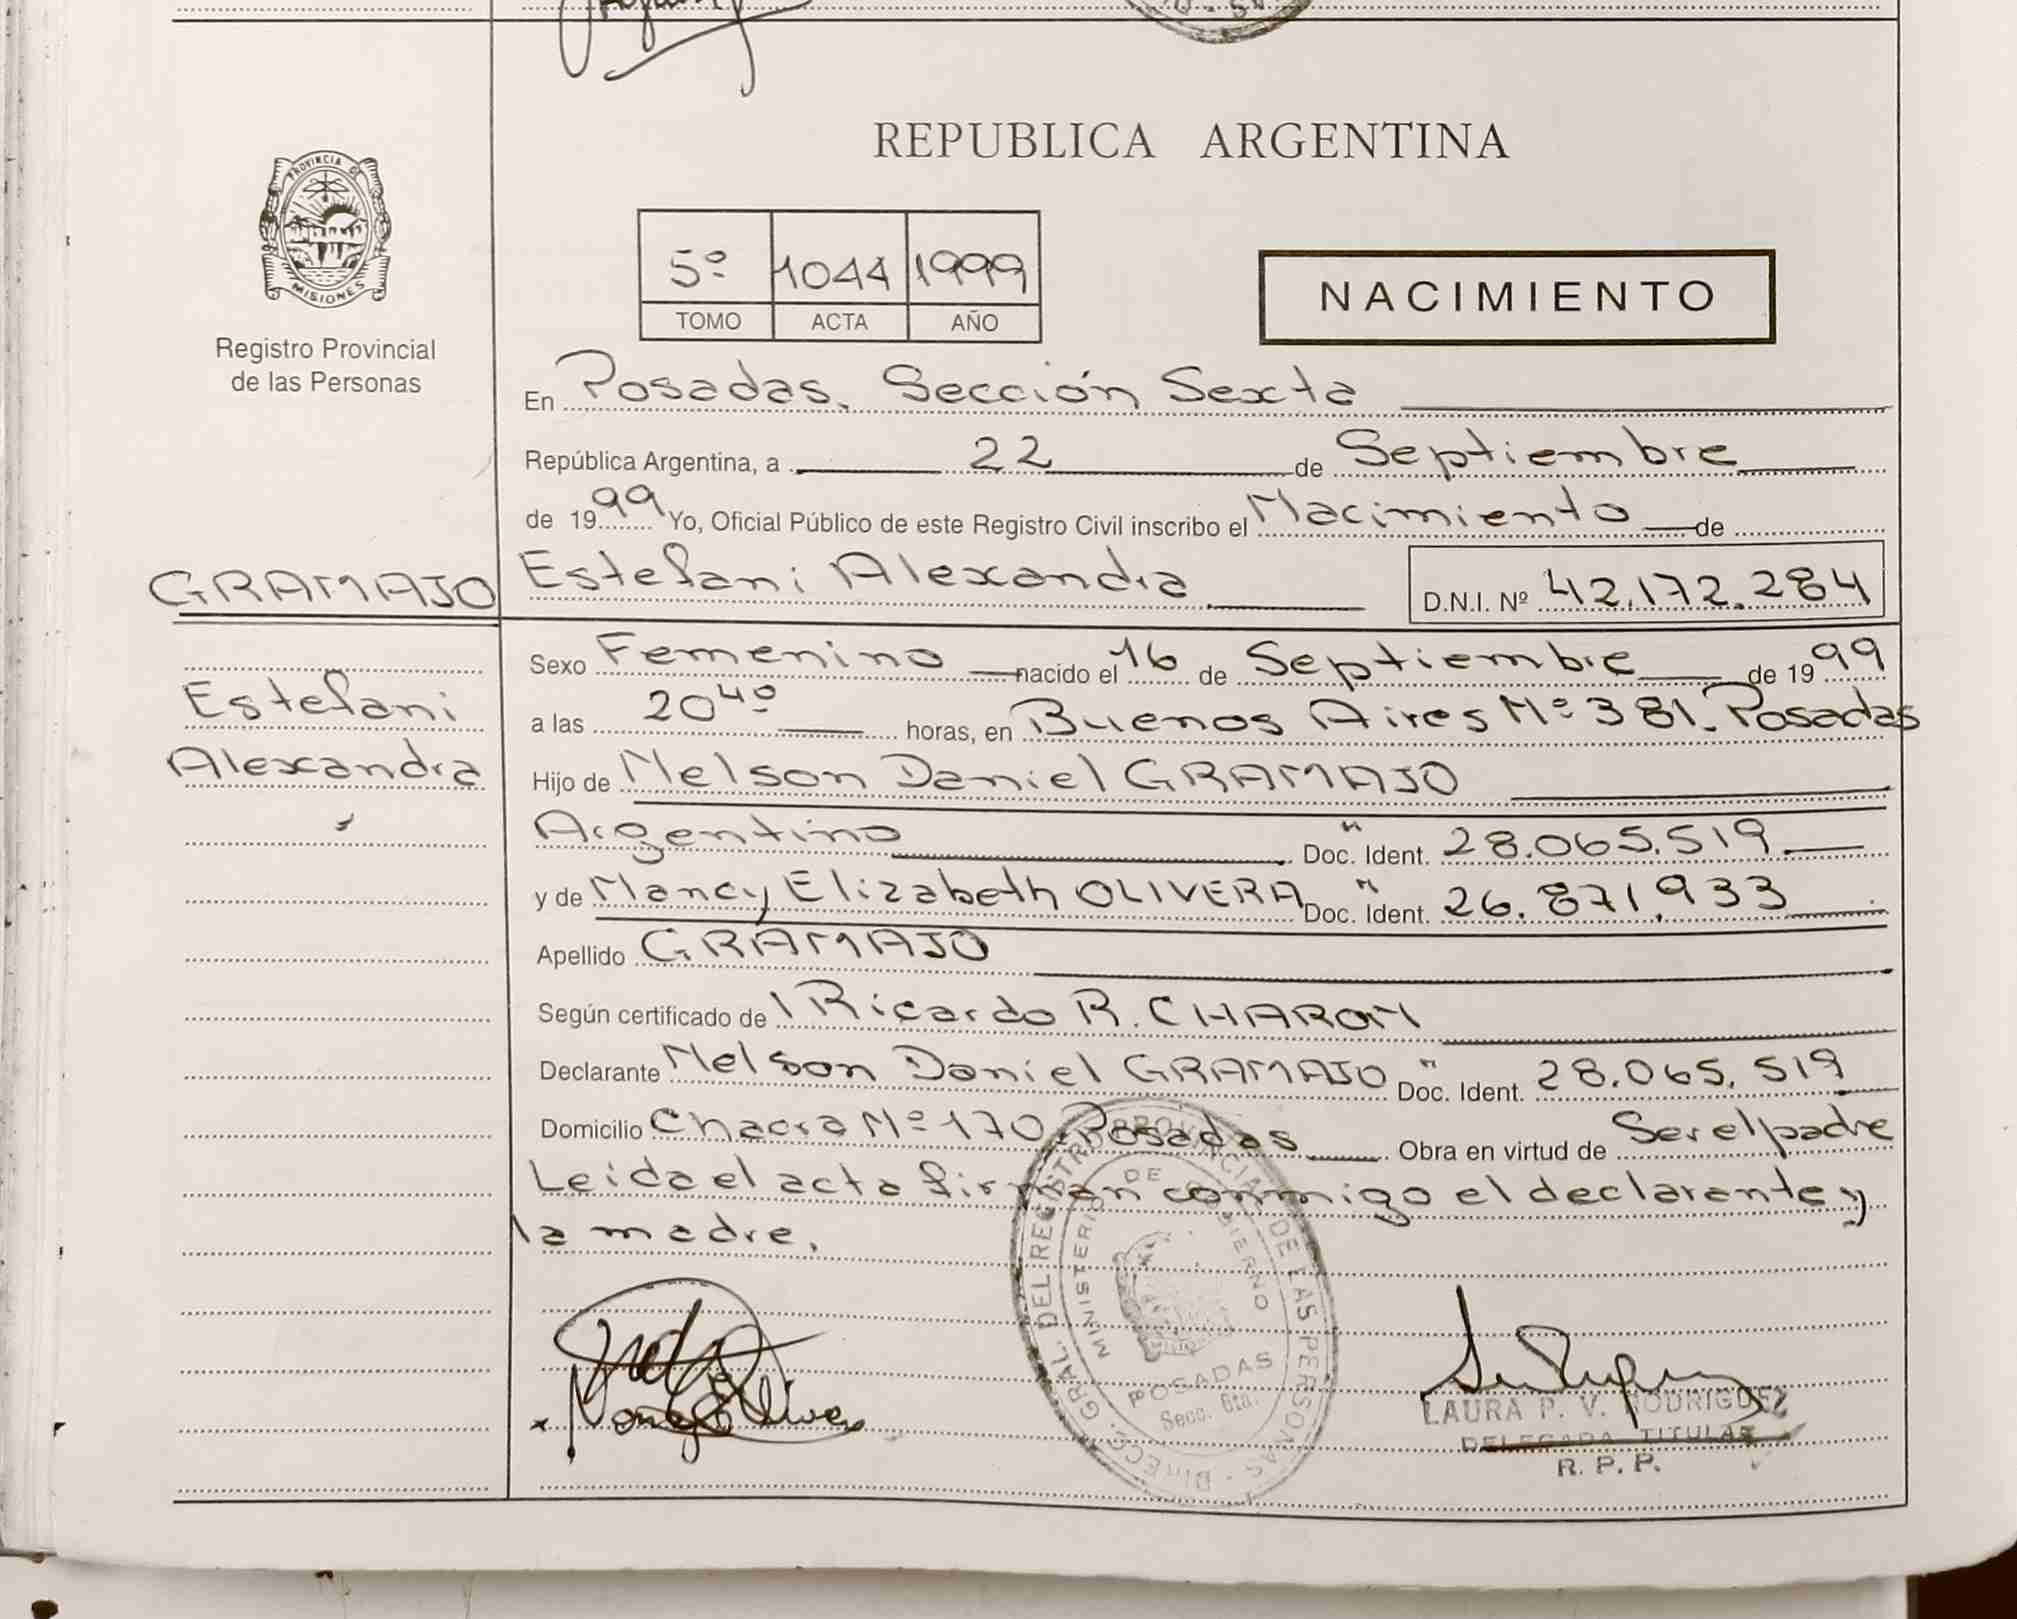 REPUBLICA ARGENTINA
PROVINCIA DE
MISIONES
Registro Provincial
de las Personas
5º 1044 1999
TOMO ACTA AÑO
NACIMIENTO
En Posadas, Sección Sexta
República Argentina, a 22 de Septiembre
de 1999 Yo, Oficial Público de este Registro Civil inscribo el Nacimiento de
GRAMAJO
Estefani
Alexandra
Estefani Alexandra D.N.I. Nº 42.172.284
Sexo Femenino nacido el 16 de Septiembre de 1999
a las 20⁴⁰ horas, en Buenos Aires Nº 381. Posadas
Hijo de Nelson Daniel GRAMAJO
Argentino Doc. Ident. 28.065.519
y de Nancy Elizabeth OLIVERA Doc. Ident. 26.871.933
Apellido GRAMAJO
Según certificado de Ricardo R. CHARON
Declarante Nelson Daniel GRAMAJO Doc. Ident. 28.065.519
Domicilio Chacra Nº 170 Posadas Obra en virtud de Ser el padre
Leida el acta firman conmigo el declarante y
la madre.
DIRECC. GRAL. DEL REGISTRO PROVINCIAL DE LAS PERSONAS
MINISTERIO DE GOBIERNO
POSADAS
Secc. 6ta.
LAURA P. V. RODRIGUEZ
DELEGADA TITULAR
R. P. P.